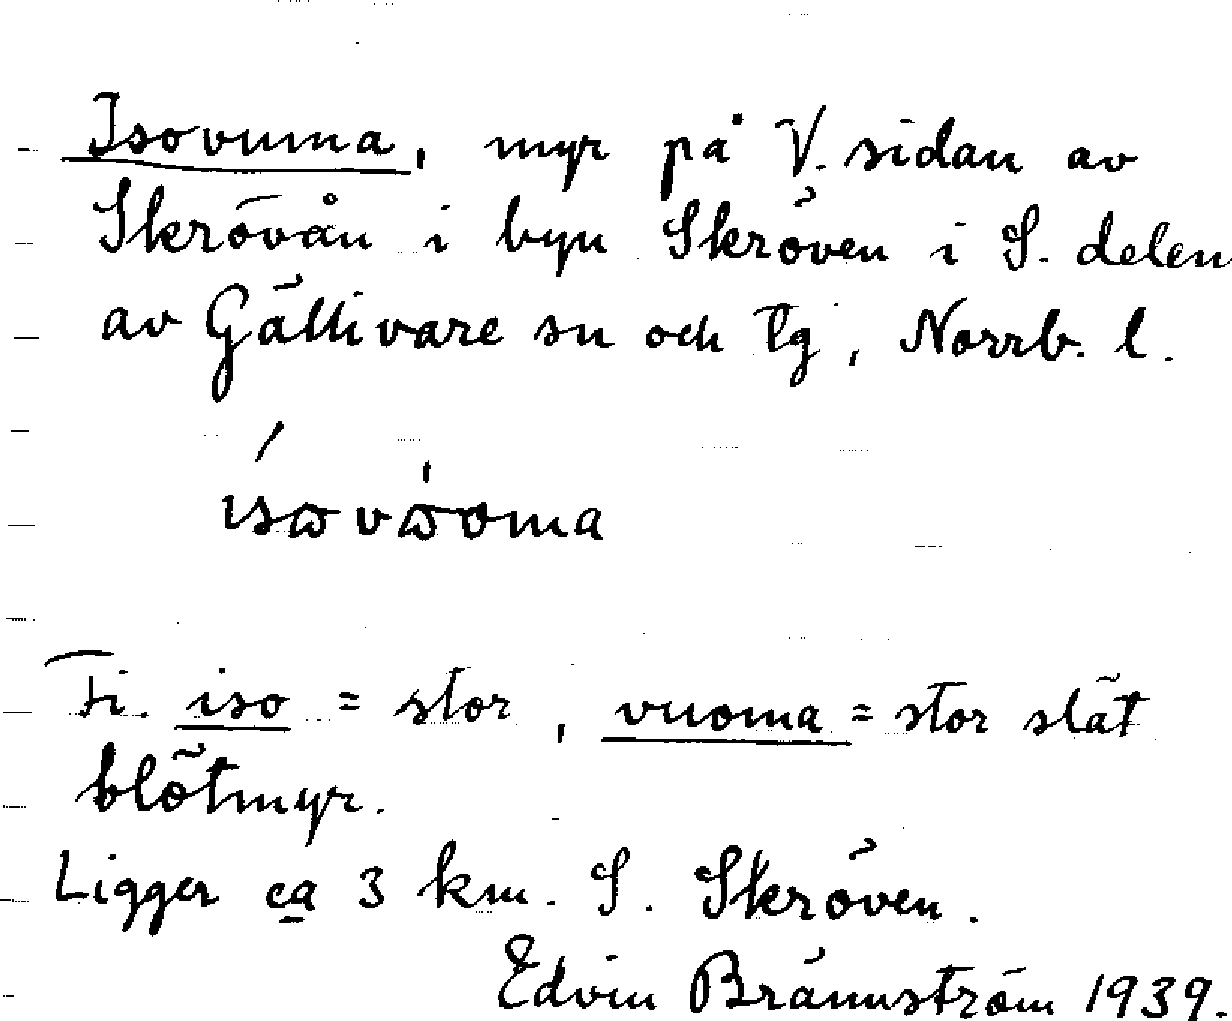 Isovuma, myr på V. sidan av
Skrövån i byn Skröven i S. delen
av Gällivare sn och tg, Norrb. l.
ísɷvɷ́oma
Fi. iso = stor, vuoma = stor slät
blötmyr.
Ligger ca 3 km. S. Skröven.
Edvin Brännström 1939.